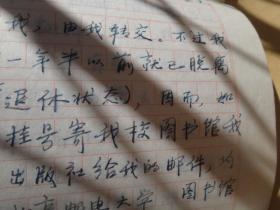 我，由我转交。不过我
一年半以前就已脱离
（退休状态），因而，如
挂号寄我校图书馆我
出版社给我的邮件，均
北京邮电大学 图书馆